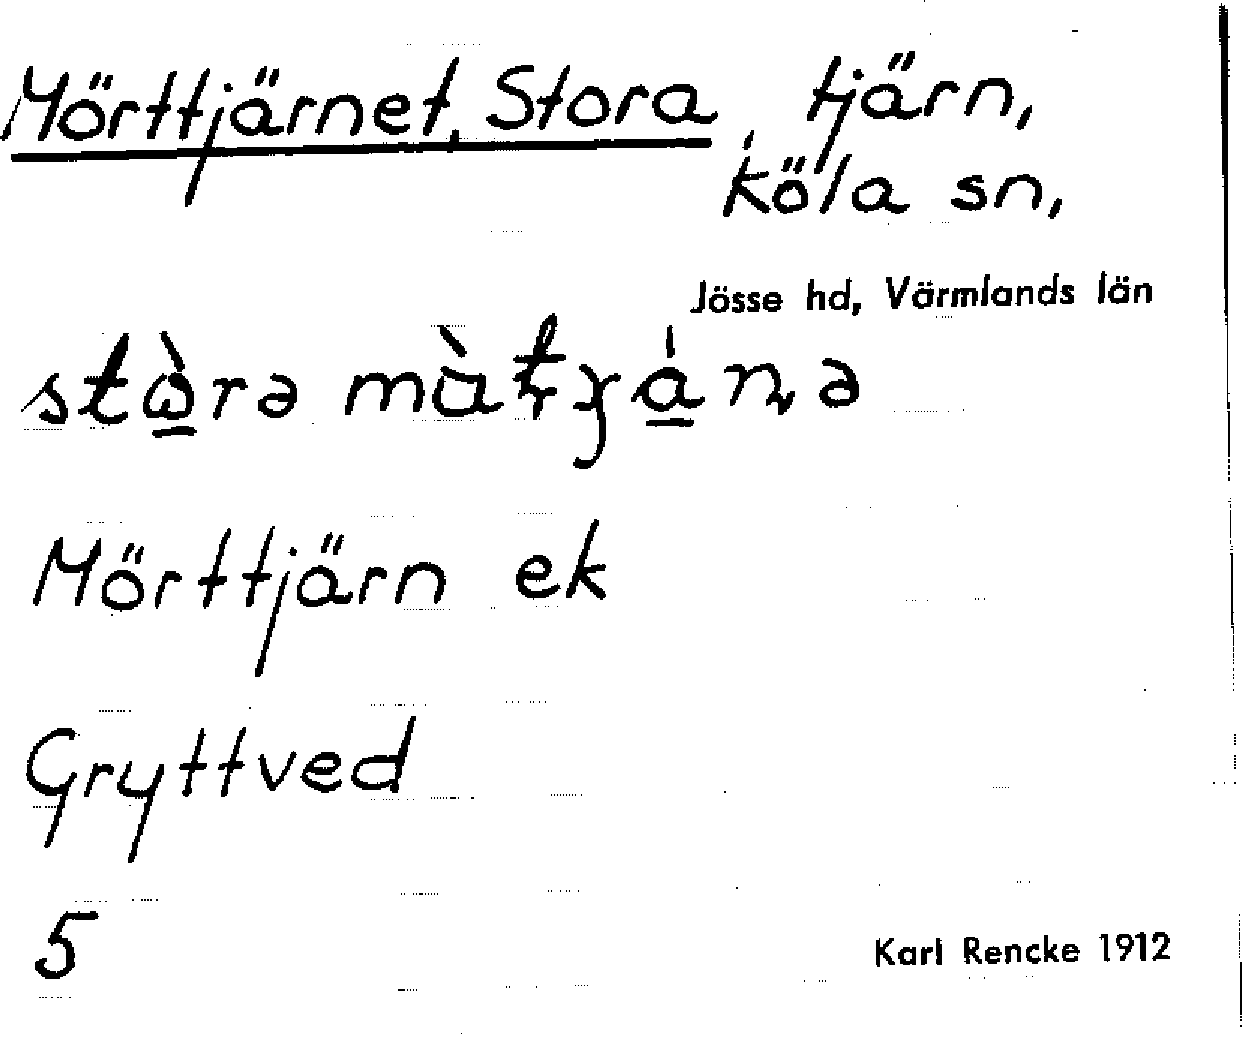 Mörttjärnet, Stora, tjärn,
Köla sn,
Jösse hd, Värmlands län
Mörttjärn ek
Gryttved
5
Karl Rencke 1912